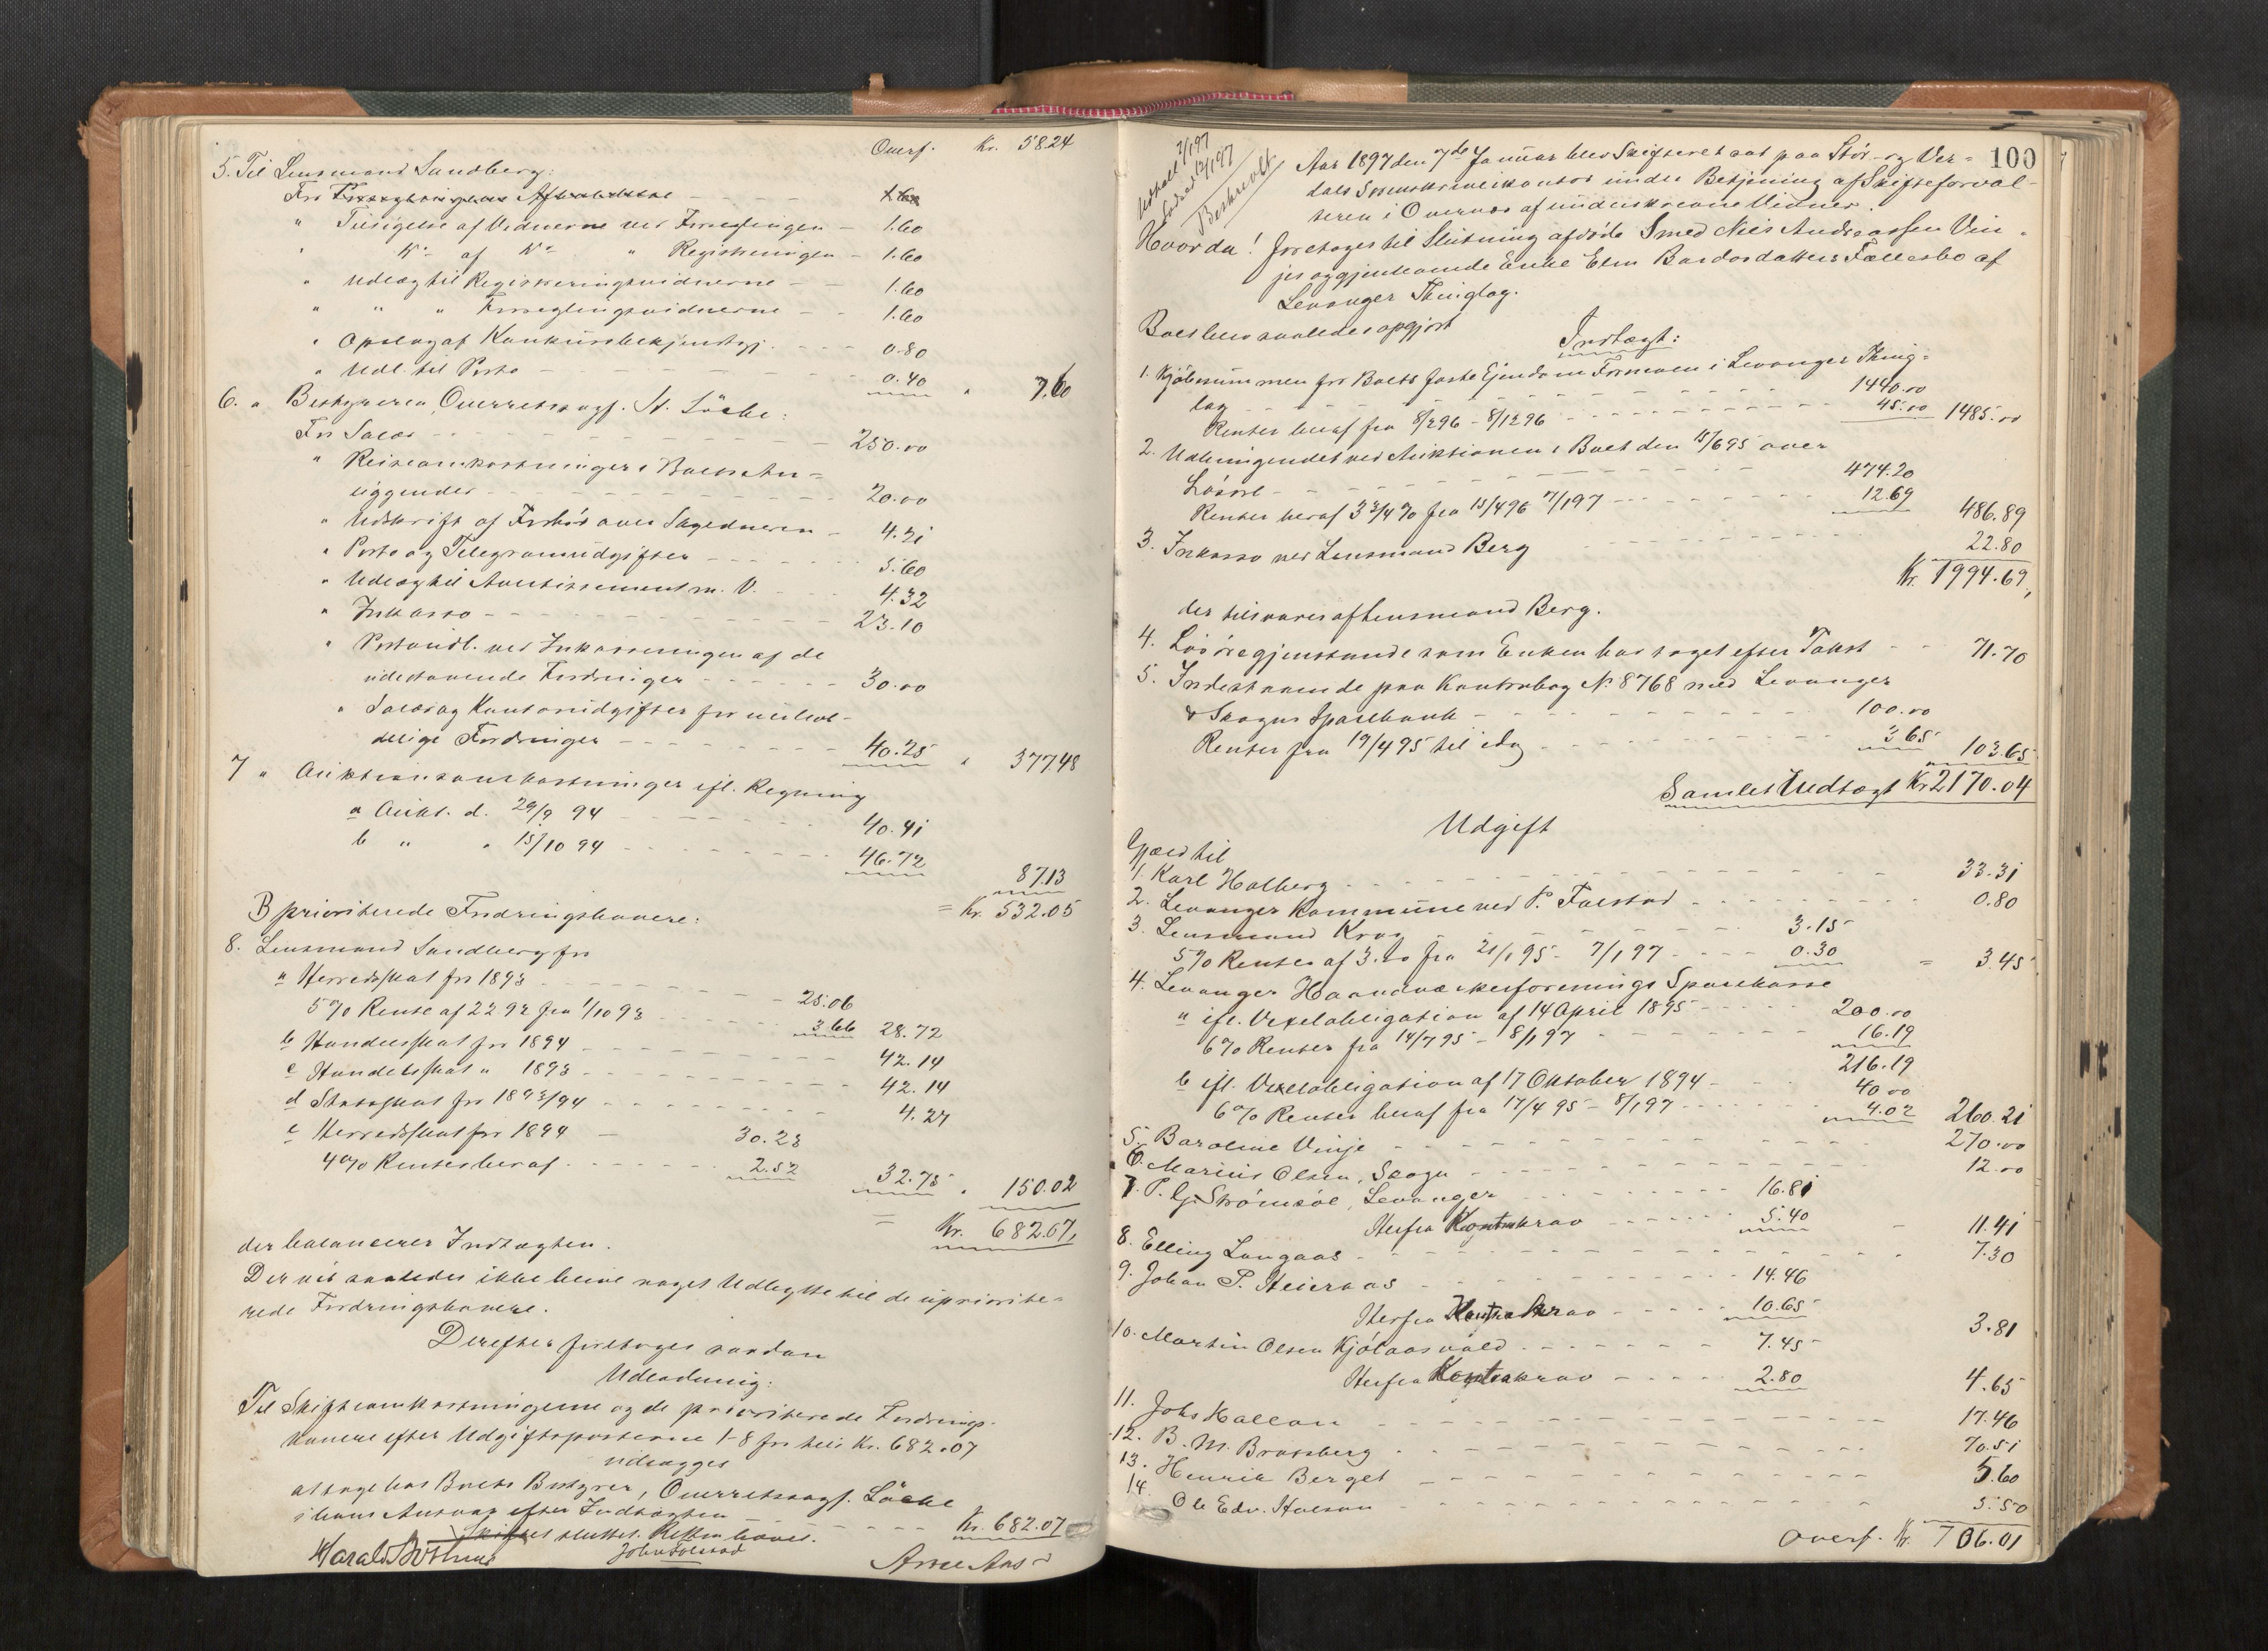 Overf. Kr. 58.24
5. Til Lensmand Sandberg:
For Forseglingens Afholdelse - - - 1.60
" Tilsigelse af Vidnerne ved Forseglingen - 1.60
" do af do " Registreringen - 1.60
" Udlæg til Registreringsvidnerne - - 1.60
" " " Forseglingsvidnerne - - 1.60
" Opslag af Konkursbekjendtgj. - - - 0.80
" Udl. til Porto - - - 0.40 " 7.60
6. " Bestyreren Overretssagf. St. Löche:
For Salær - - - 250.00
" Reiseomkostninger i Boets An=
liggender - - - 20.00
" Udskrift af Forhør over Skyldneren - 4.21
" Porto og Telegramudgifter - - - 5.60
" Udlæg til Avertissement m. V. - - 4.32
" Inkasso - - - 23.10
" Postandl. ved Inkasseringen af de
udestaaende Fordringer - - - 30.00
" Salær og Kontorudgifter for uerhol-
delige Fordringer - - - 40.25 " 377.48
7 " Auktionsomkostninger ifl. Regning
a Aukt. d. 29/9 94 - - - 40.41
b " " 15/10 94 - - - 46.72
87.13
= Kr. 532.05
B prioriterede Fordringshavere:
8. Lensmand Sandberg for
a Herredsskat for 1893 - - - 25.06
5% Rente af 22.92 fra 1/10 93 - - - 3.66 28.72
b Handelsskat for 1894 - - - 42.14
c Handelsskat " 1893 - - - 42.14
d Statsskat for 1893/94 - - - 4.27
e Herredsskat for 1894 - 30.23
4% Renter heraf - - - 2.52 32.75 " 150.02
= Kr. 682.07,
der balancerer Indtægten.
Der vil saaledes ikke blive noget Udlægge til de upriorite=
rede Fordringshavere.
Derefter foretoges saadan
Udlodning:
Til Skifteomkostningerne og de prioriterede Fordrings-
havere efter Udgiftsposterne 1-8 for tils Kr. 682.07
udlægges
at tage hos Boets Bestyrer, Overretssagf. Löche
i hans Ansvar efter Indtægten - - - Kr. 682.07
Skiftet sluttet. Retten hævet.
Harald Bothner John Folstad Arne Aas
100
Udstedt 7/1 97
Beskrevet
Aar 1897 den 7de Januar blev Skifteret sat paa Stör- og Ver=
dals Sorenskriverikontor under Betjening af Skifteforval-
teren i Overvær af underskrevne Vidner.
Hvorda! foretoges til Slutning afdøde Smed Nils Andreassen Vin-
jes og gjenlevende Enke Elen Bardosdatters Fællesbo af
Levanger Thinglag.
Boet blev saaledes opgjort
Indtægt:
1. Kjöbesummen for Boets faste Eiendom Formoen i Levanger Thing=
lag - - - 1440.00
Renter heraf fra 8/2 96 - 8/12 96 - - - 45.00 1485.00
2. Udbringendet ved Auktionen i Boet den 15/6 95 over
Lösöre - - - 474.20
Renter heraf 3 3/4 % fra 15/4 96 7/1 97 - - - 12.69 486.89
3. Inkasso ved Lensmand Berg - - - 22.80
Kr. 1994.69,
der tilsvares af Lensmand Berg.
4. Lösöregjenstande som Enken har taget efter Takst - - 71.70
5. Indestaaende paa Kontrabog No 8768 med Levanger
& Skogns Sparebank - - - 100.00
Renter fra 19/4 95 til idag - - - 3.65 103.65
Samlet Indtægt Kr. 2170.04
Udgift
Gjæld til
1. Karl Holberg - - - 33.31
2. Levanger Kommune ved P. Falstad - - - 0.80
3. Lensmand Krog - - - 3.15
5% Renter af 3.00 fra 21/1 95 - 7/1 97 - - - 0.30 = 3.45
4. Levanger Haandværkerforenings Sparekasse
a ifl. Vexelobligation af 14 April 1895 - - - 200.00
6% Renter fra 14/7 95 - 8/1 97 - - - 16.19
216.19
b ifl. Vexelobligation af 17 Oktober 1894 - 40.00
6% Renter heraf fra 17/4 95 - 8/1 97 - - - 4.02 260.21
5. Baroline Vinje - - - 270.00
6. Marius Olsen, Skogn - - - 12.00
7. P. G. Strömsöe, Levanger - - - 16.81
Herfra Kontrakrav - - - 5.40 - 11.41
8. Elling Langaas - - - 7.30
9. Johan P. Heieraas - - - 14.46
Herfra Kontrakrav - - - 10.65 3.81
10. Martin Olsen Kjölaasvald - - - 7.45
Herfra Kontrakrav - - - 2.80 4.65
11. Johs Hallan - - - 17.46
12. B. M. Brusberg - - - 70.51
13. Henrik Berget - - - 5.60
14. Ole Edv. Halsan - - - 5.50
Overf. Kr. 706.01